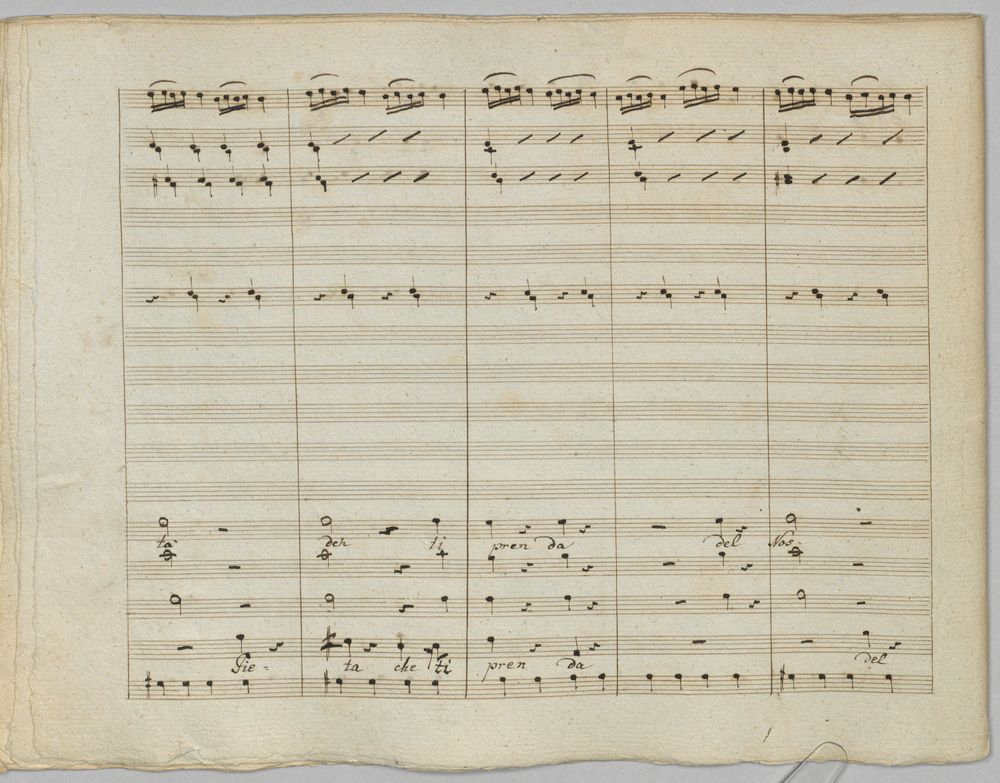 ta deh ti pren da del Nos-
Pie- ta che ti pren da del